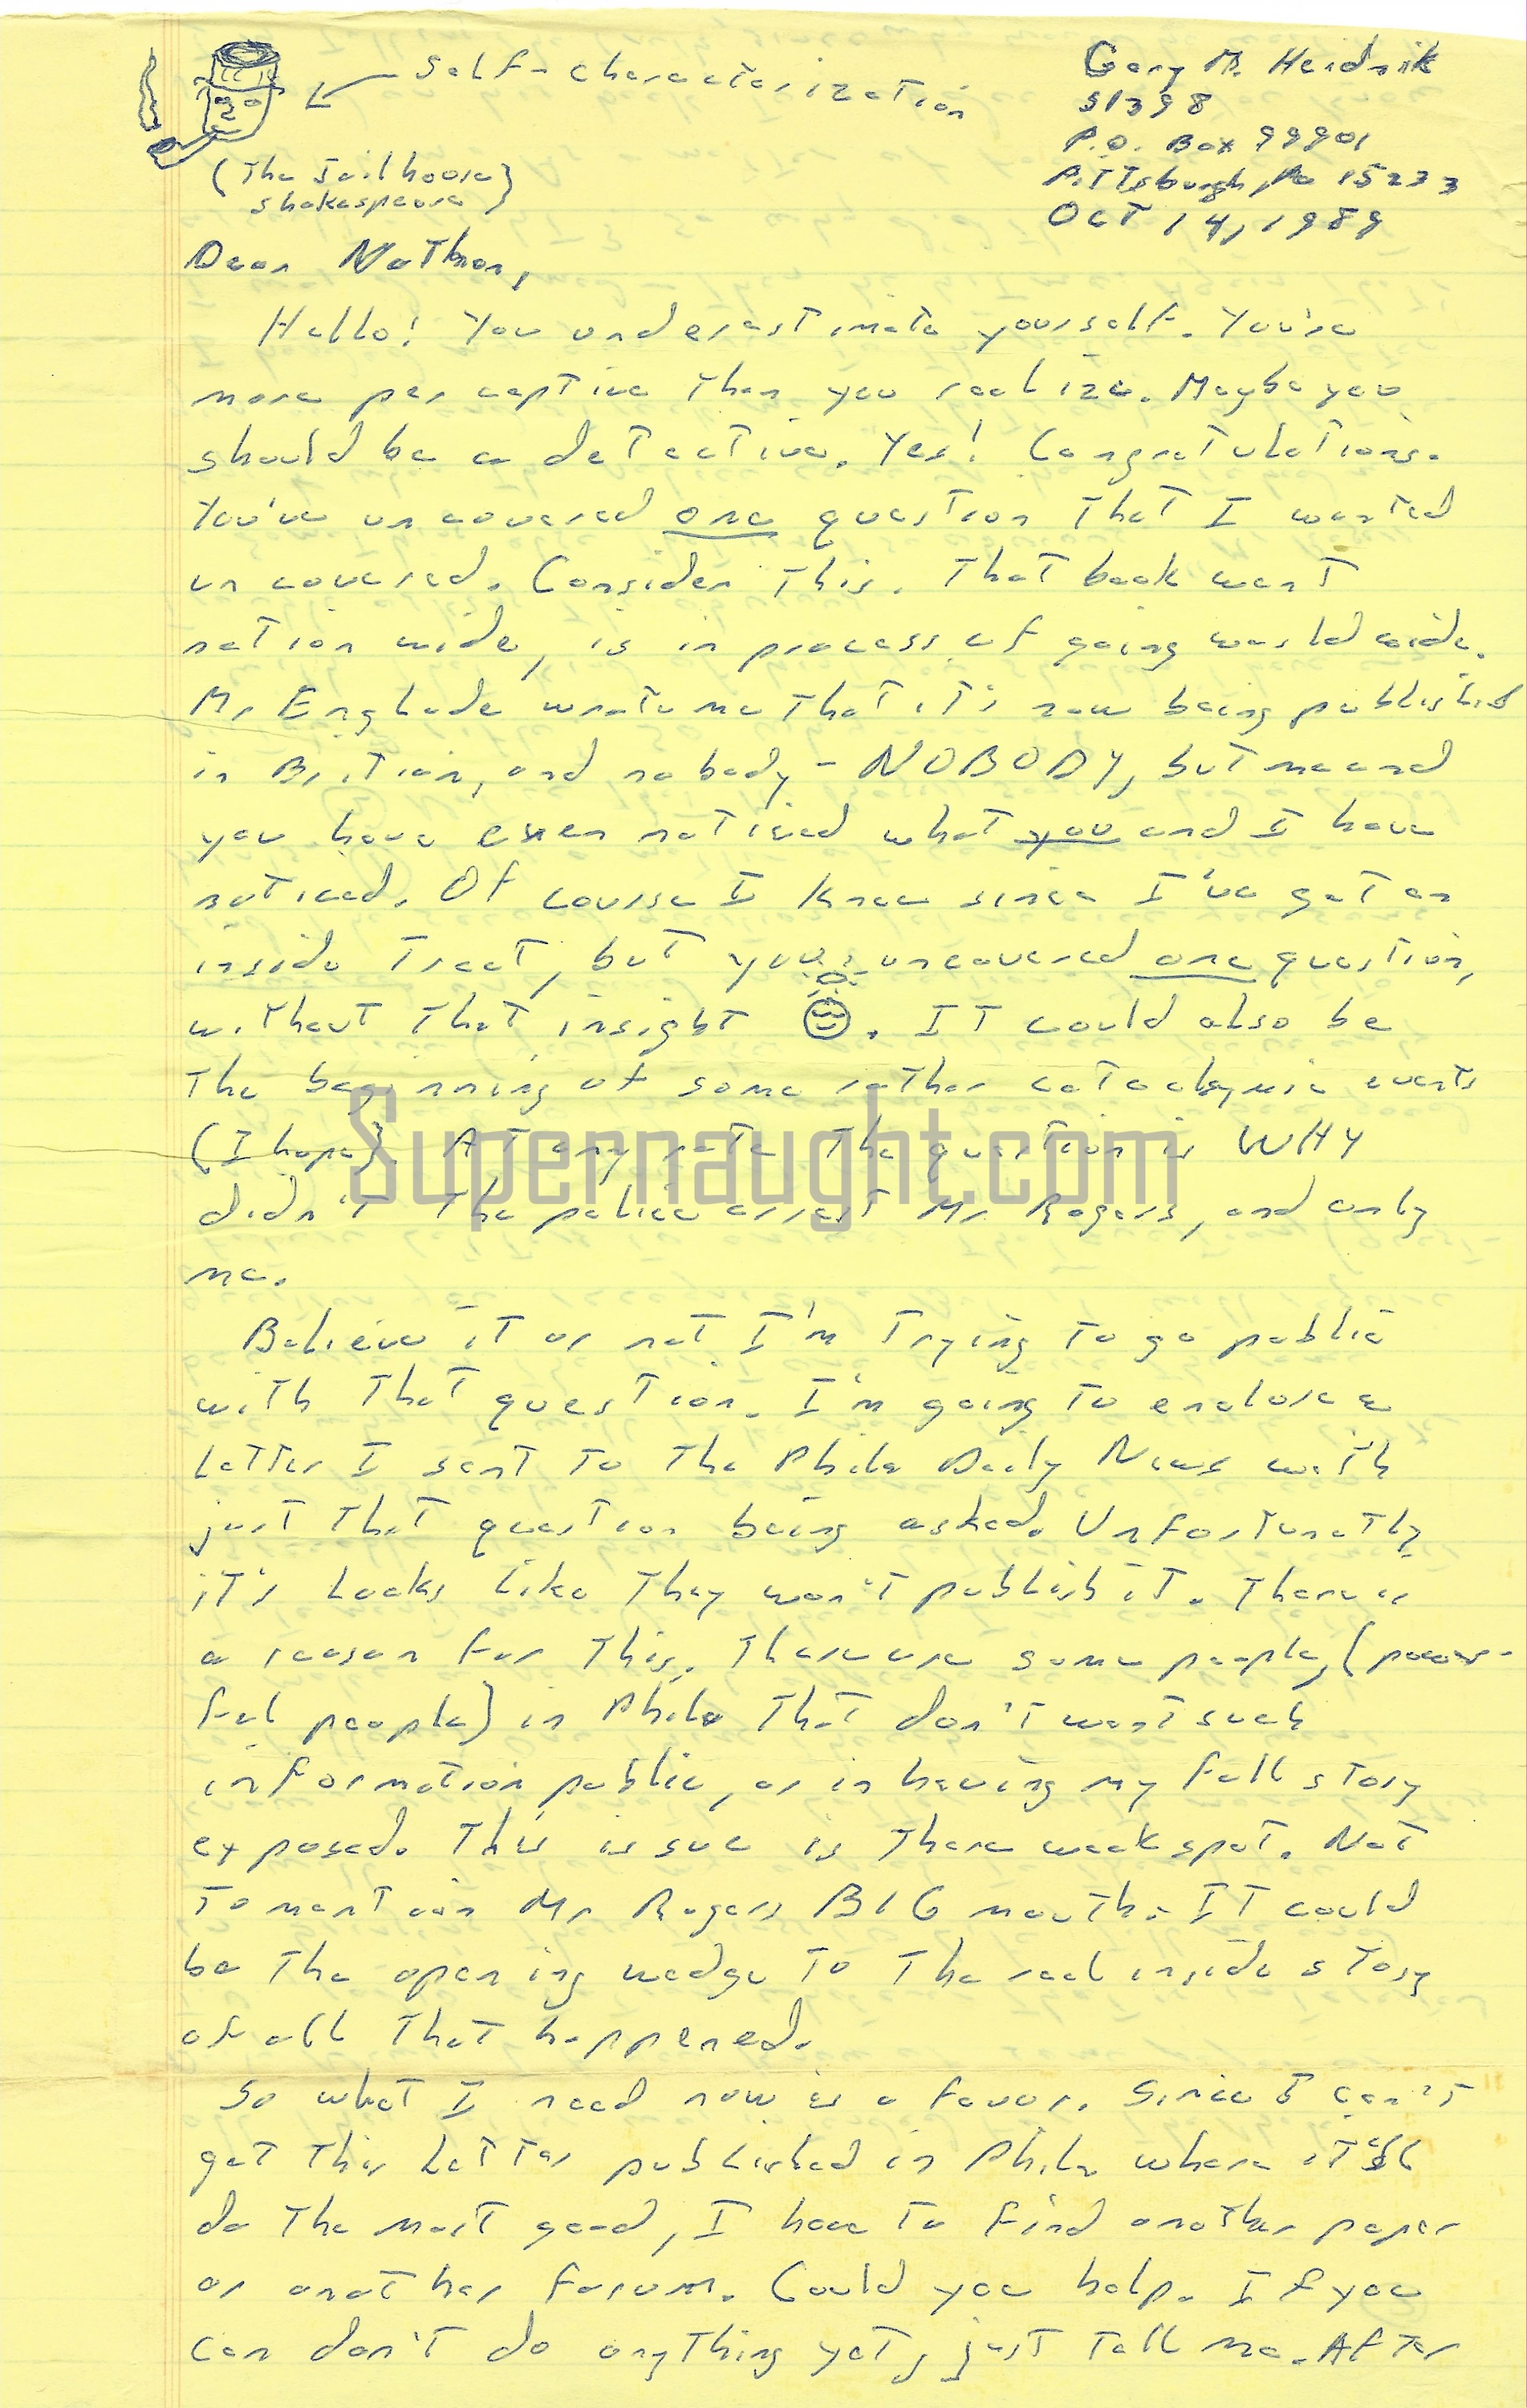 Self-characterization
(The Jailhouse
Shakespeare)
Gary M. Heidnik
S1398
P.O. Box 99901
Pittsburgh, Pa 15233
Oct 14, 1989
Dear Nathan,
Hello! You underestimate yourself. You're
more perceptive than you realize. Maybe you
should be a detective. Yes! Congratulations.
You've uncovered one question that I wanted
uncovered. Consider this. That book went
nation wide, is in process of going world wide.
Mr Englade wrote me that it's now being published
in Britian, and nobody - NOBODY, but me and
you have even noticed what you and I have
noticed. Of course I knew since I've got an
inside tract, but you uncovered one question,
without that insight. IT could also be
the beginning of some rather cataclysmic events
(I hope). AT any rate the question is WHY
didn't the police arrest Mr Rogers, and only
me.
Believe it or not I'm trying to go public
with that question. I'm going to enclose a
letter I sent to the Phila Daily News with
just that question being asked. Unfortunatly
it's looks like they won't publish it. There is
a reason for this. There are some people, (power-
ful people) in Phila that don't want such
information public, or in having my full story
exposed. This issue is there weak spot. Not
to mention Mr Rogers BIG mouth. IT could
be the opening wedge to the real inside story
of all that happened.
So what I need now is a favor. Since I can't
get this letter published in Phila where it'll
do the most good, I have to find another paper
or another forum. Could you help. If you
can don't do anything yet, just tell me. After
Supernaught.com